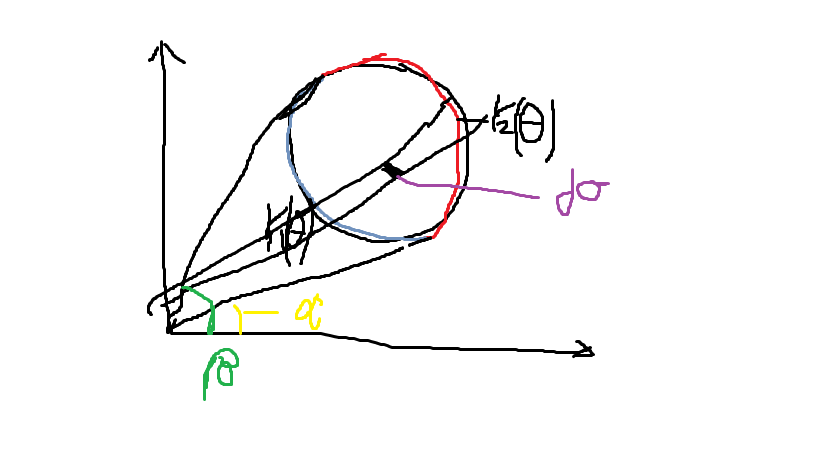 r₂(θ)
dσ
r₁(θ)
α
β